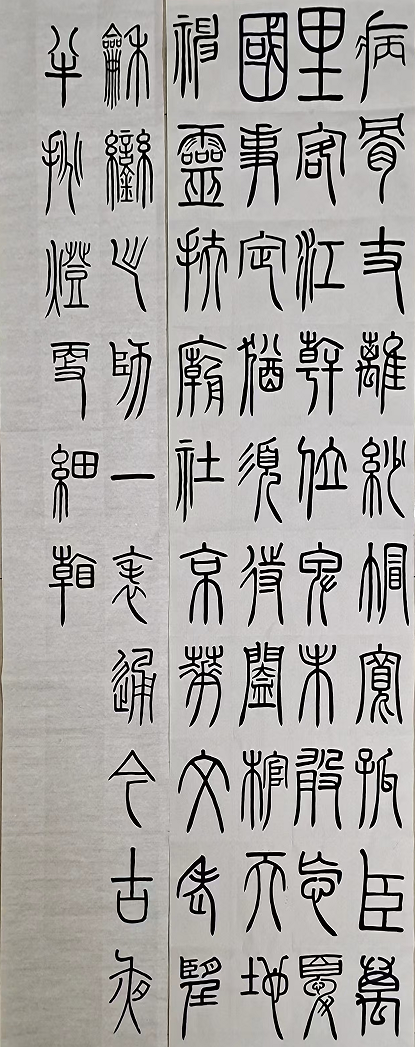 病骨支離紗帽寬孤臣萬
里客江幹位卑未敢忘憂
國事定猶須待闔棺天地
神靈扶廟社京華父老望
龢鑾出師一表通今古夜
半挑燈更細看